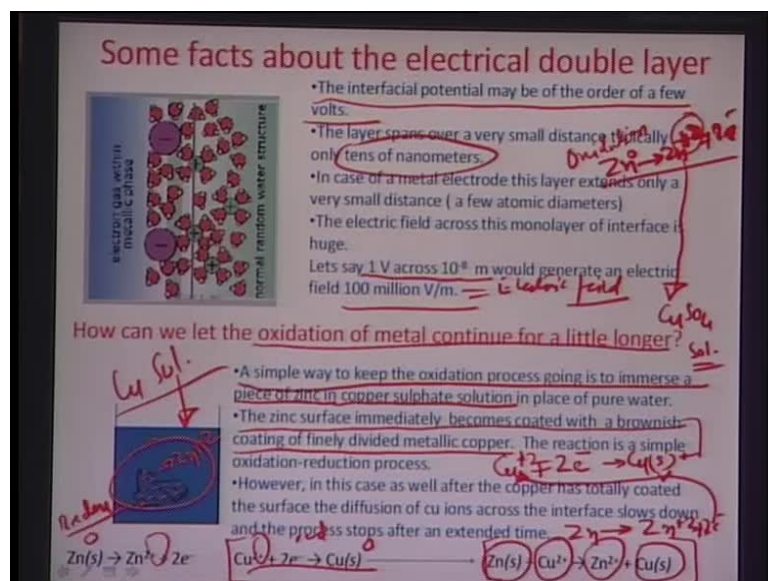 Some facts about the electrical double layer
electron gas within
metallic phase
normal random water structure
•The interfacial potential may be of the order of a few
volts.
•The layer spans over a very small distance typically
only tens of nanometers.
Oxidation
•In case of a metal electrode this layer extends only a
very small distance ( a few atomic diameters)
•The electric field across this monolayer of interface is
huge.
Lets say 1 V across 10⁻⁸ m would generate an electric
field 100 million V/m. = Electric field
CuSO4
Sol.
How can we let the oxidation of metal continue for a little longer?
Cu Sul.
•A simple way to keep the oxidation process going is to immerse a
piece of zinc in copper sulphate solution in place of pure water.
•The zinc surface immediately becomes coated with a brownish
coating of finely divided metallic copper. The reaction is a simple
oxidation-reduction process.
Cu+2 + 2e- → Cu(s)
•However, in this case as well after the copper has totally coated
the surface the diffusion of cu ions across the interface slows down
and the process stops after an extended time.
Zn → Zn+2+2e
Redox
red
Zn(s) → Zn²⁺ + 2e⁻
Cu²⁺ + 2e⁻ → Cu(s)
Zn(s) + Cu²⁺ → Zn²⁺ + Cu(s)